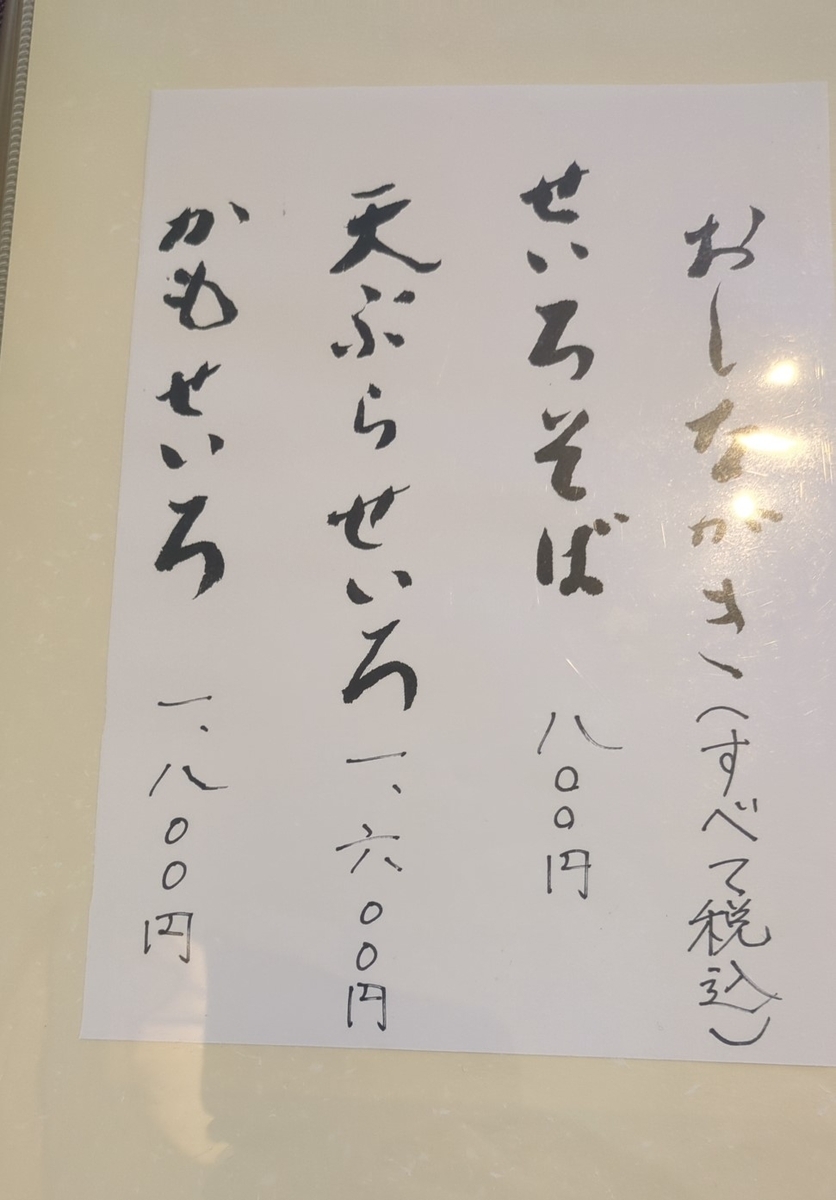 おしながき(すべて税込)
せいろそば 八〇〇円
天ぷらせいろ 一、六〇〇円
かもせいろ 一、八〇〇円